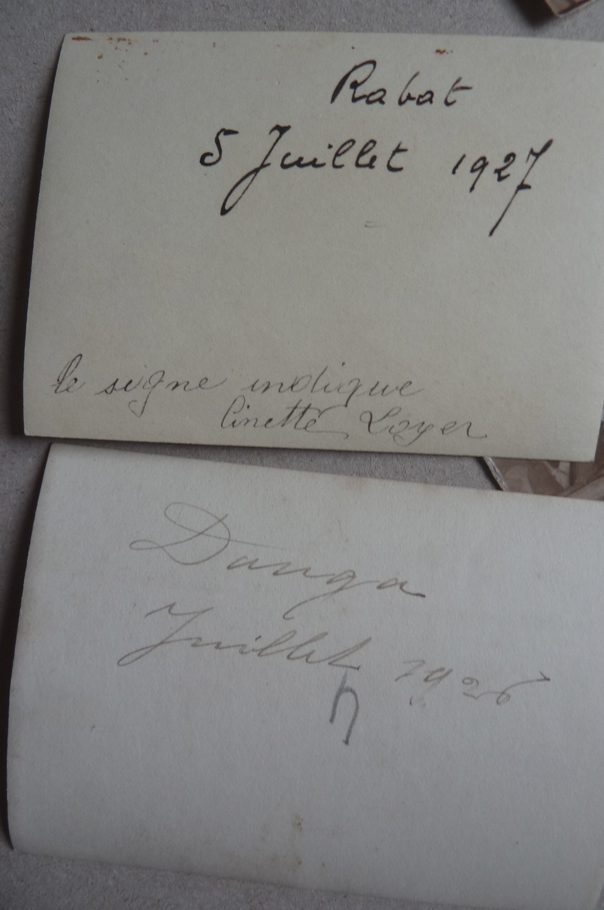 Rabat
5 Juillet 1927
le signe indique
Linette Loyer
Donga
Juillet 1926